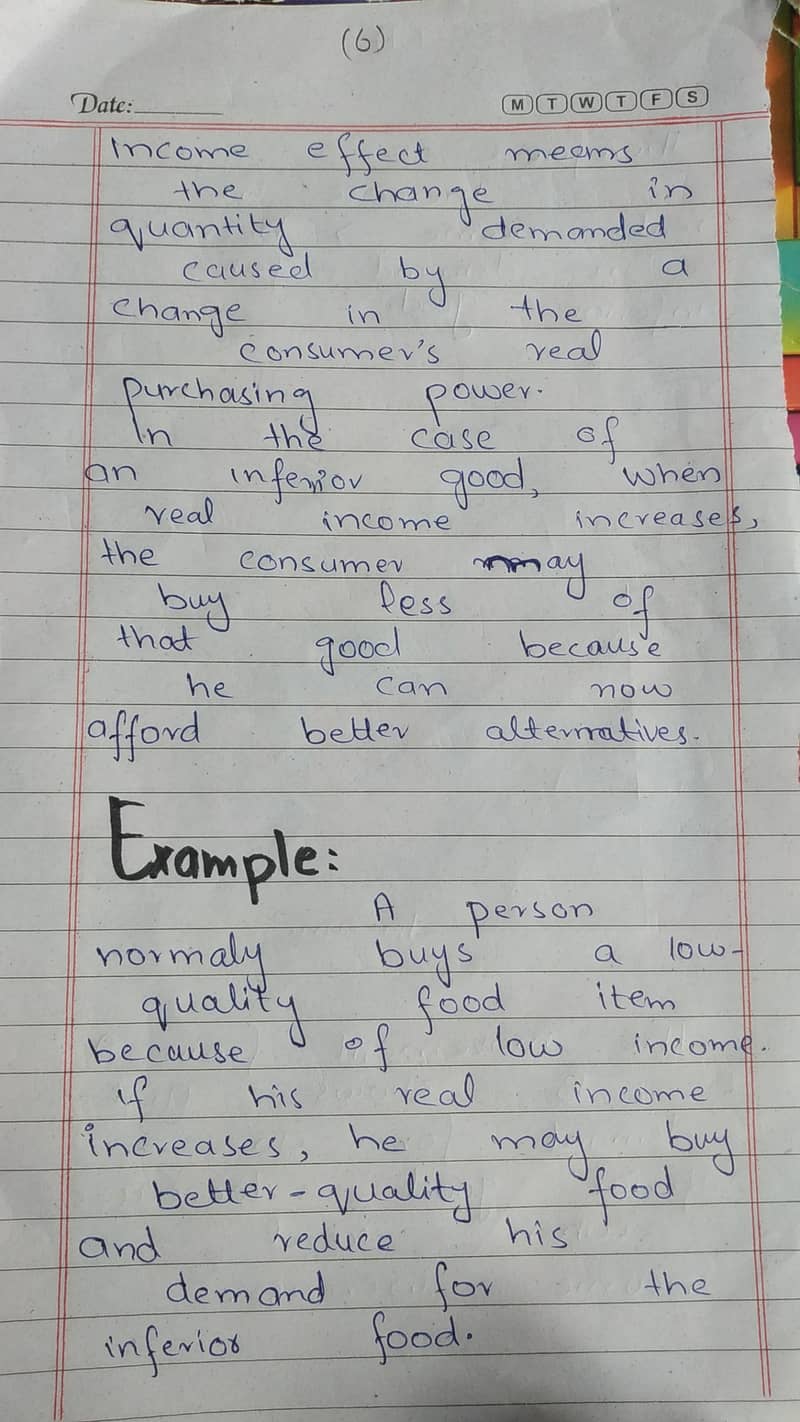 (6)
Date: M T W T F S
Income effect meems
the change in
quantity demanded
caused by a
change in the
consumer's real
purchasing power.
In the case of
an inferior good, when
real income increases,
the consumer may
buy less of
that good because
he can now
afford better alternatives.
Example:
A person
normaly buys a low-
quality food item
because of low income.
if his real income
increases, he may buy
better-quality food
and reduce his
demand for the
inferior food.